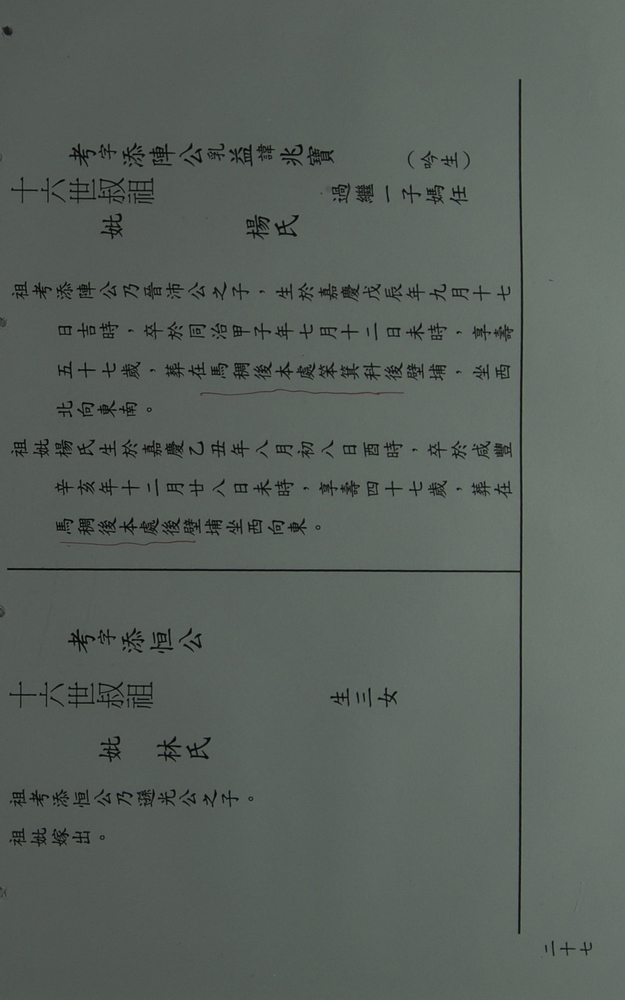 考字添陣公乳益諱兆寶 （吟生）
十六世叔祖 過繼一子媽任
妣 楊氏
祖考添陣公乃晉沛公之子，生於嘉慶戊辰年九月十七
日吉時，卒於同治甲子年七月十二日未時，享壽
五十七歲，葬在馬稠後本處笨箕科後壁埔，坐西
北向東南。
祖妣楊氏生於嘉慶乙丑年八月初八日酉時，卒於咸豐
辛亥年十二月廿八日未時，享壽四十七歲，葬在
馬稠後本處後壁埔坐西向東。
考字添恒公
十六世叔祖 生三女
妣 林氏
祖考添恒公乃遜光公之子。
祖妣嫁出。
二十七